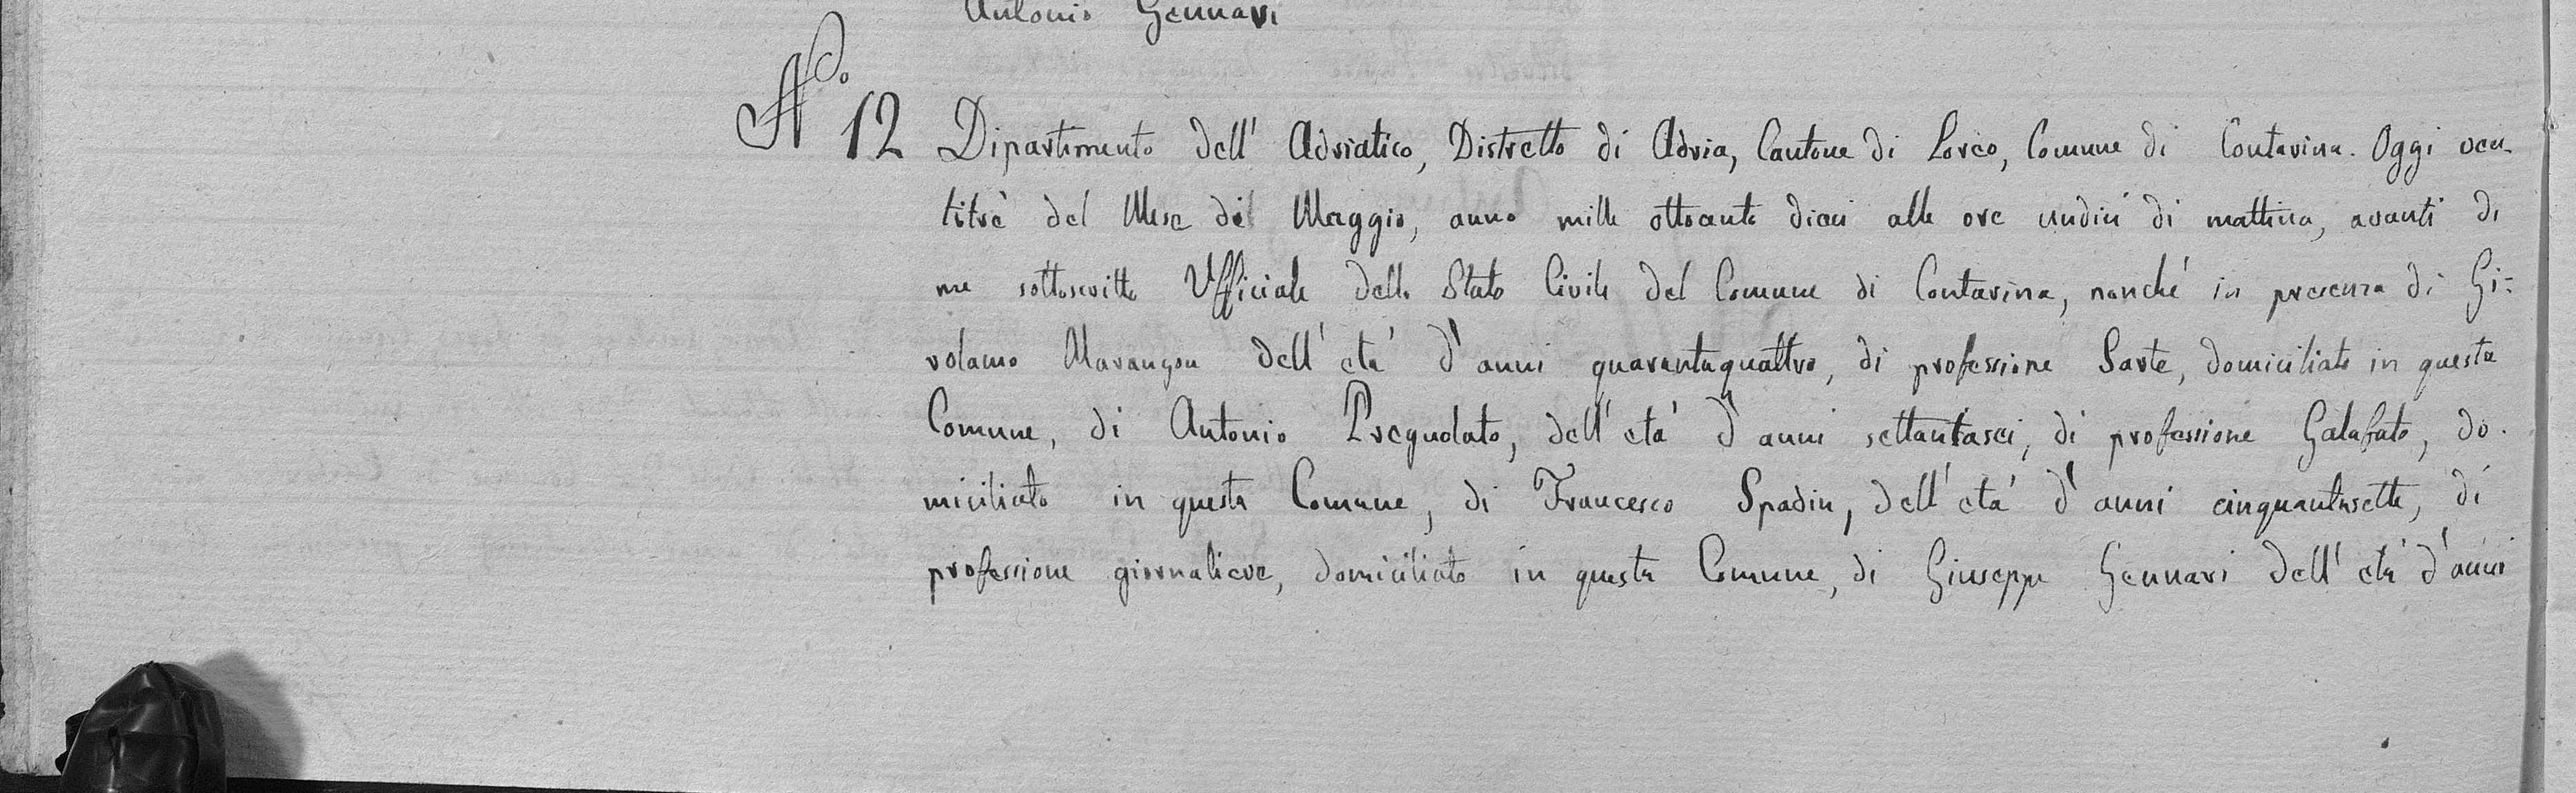 Antonio Gennari
N.o 12 Dipartimento dell' Adriatico, Distretto di Adria, Cantone di Loreo, Comune di Contarina. Oggi ven-
titrè del Mese di Maggio, anno mille ottocento dieci alle ore undici di mattina, avanti di
me sottoscritto Ufficiale dello Stato Civile del Comune di Contarina, nonché in presenza di Gi=
rolamo Marangon dell' età d' anni quarantaquattro, di professione Sarte, domiciliato in questa
Comune, di Antonio Pregnolato, dell' età d' anni settantasei, di professione Galafato, do-
miciliato in questa Comune, di Francesco Spadin, dell' età d' anni cinquantasette, di
professione giornaliere, domiciliato in questa Comune, di Giuseppe Gennari dell' età d' anni